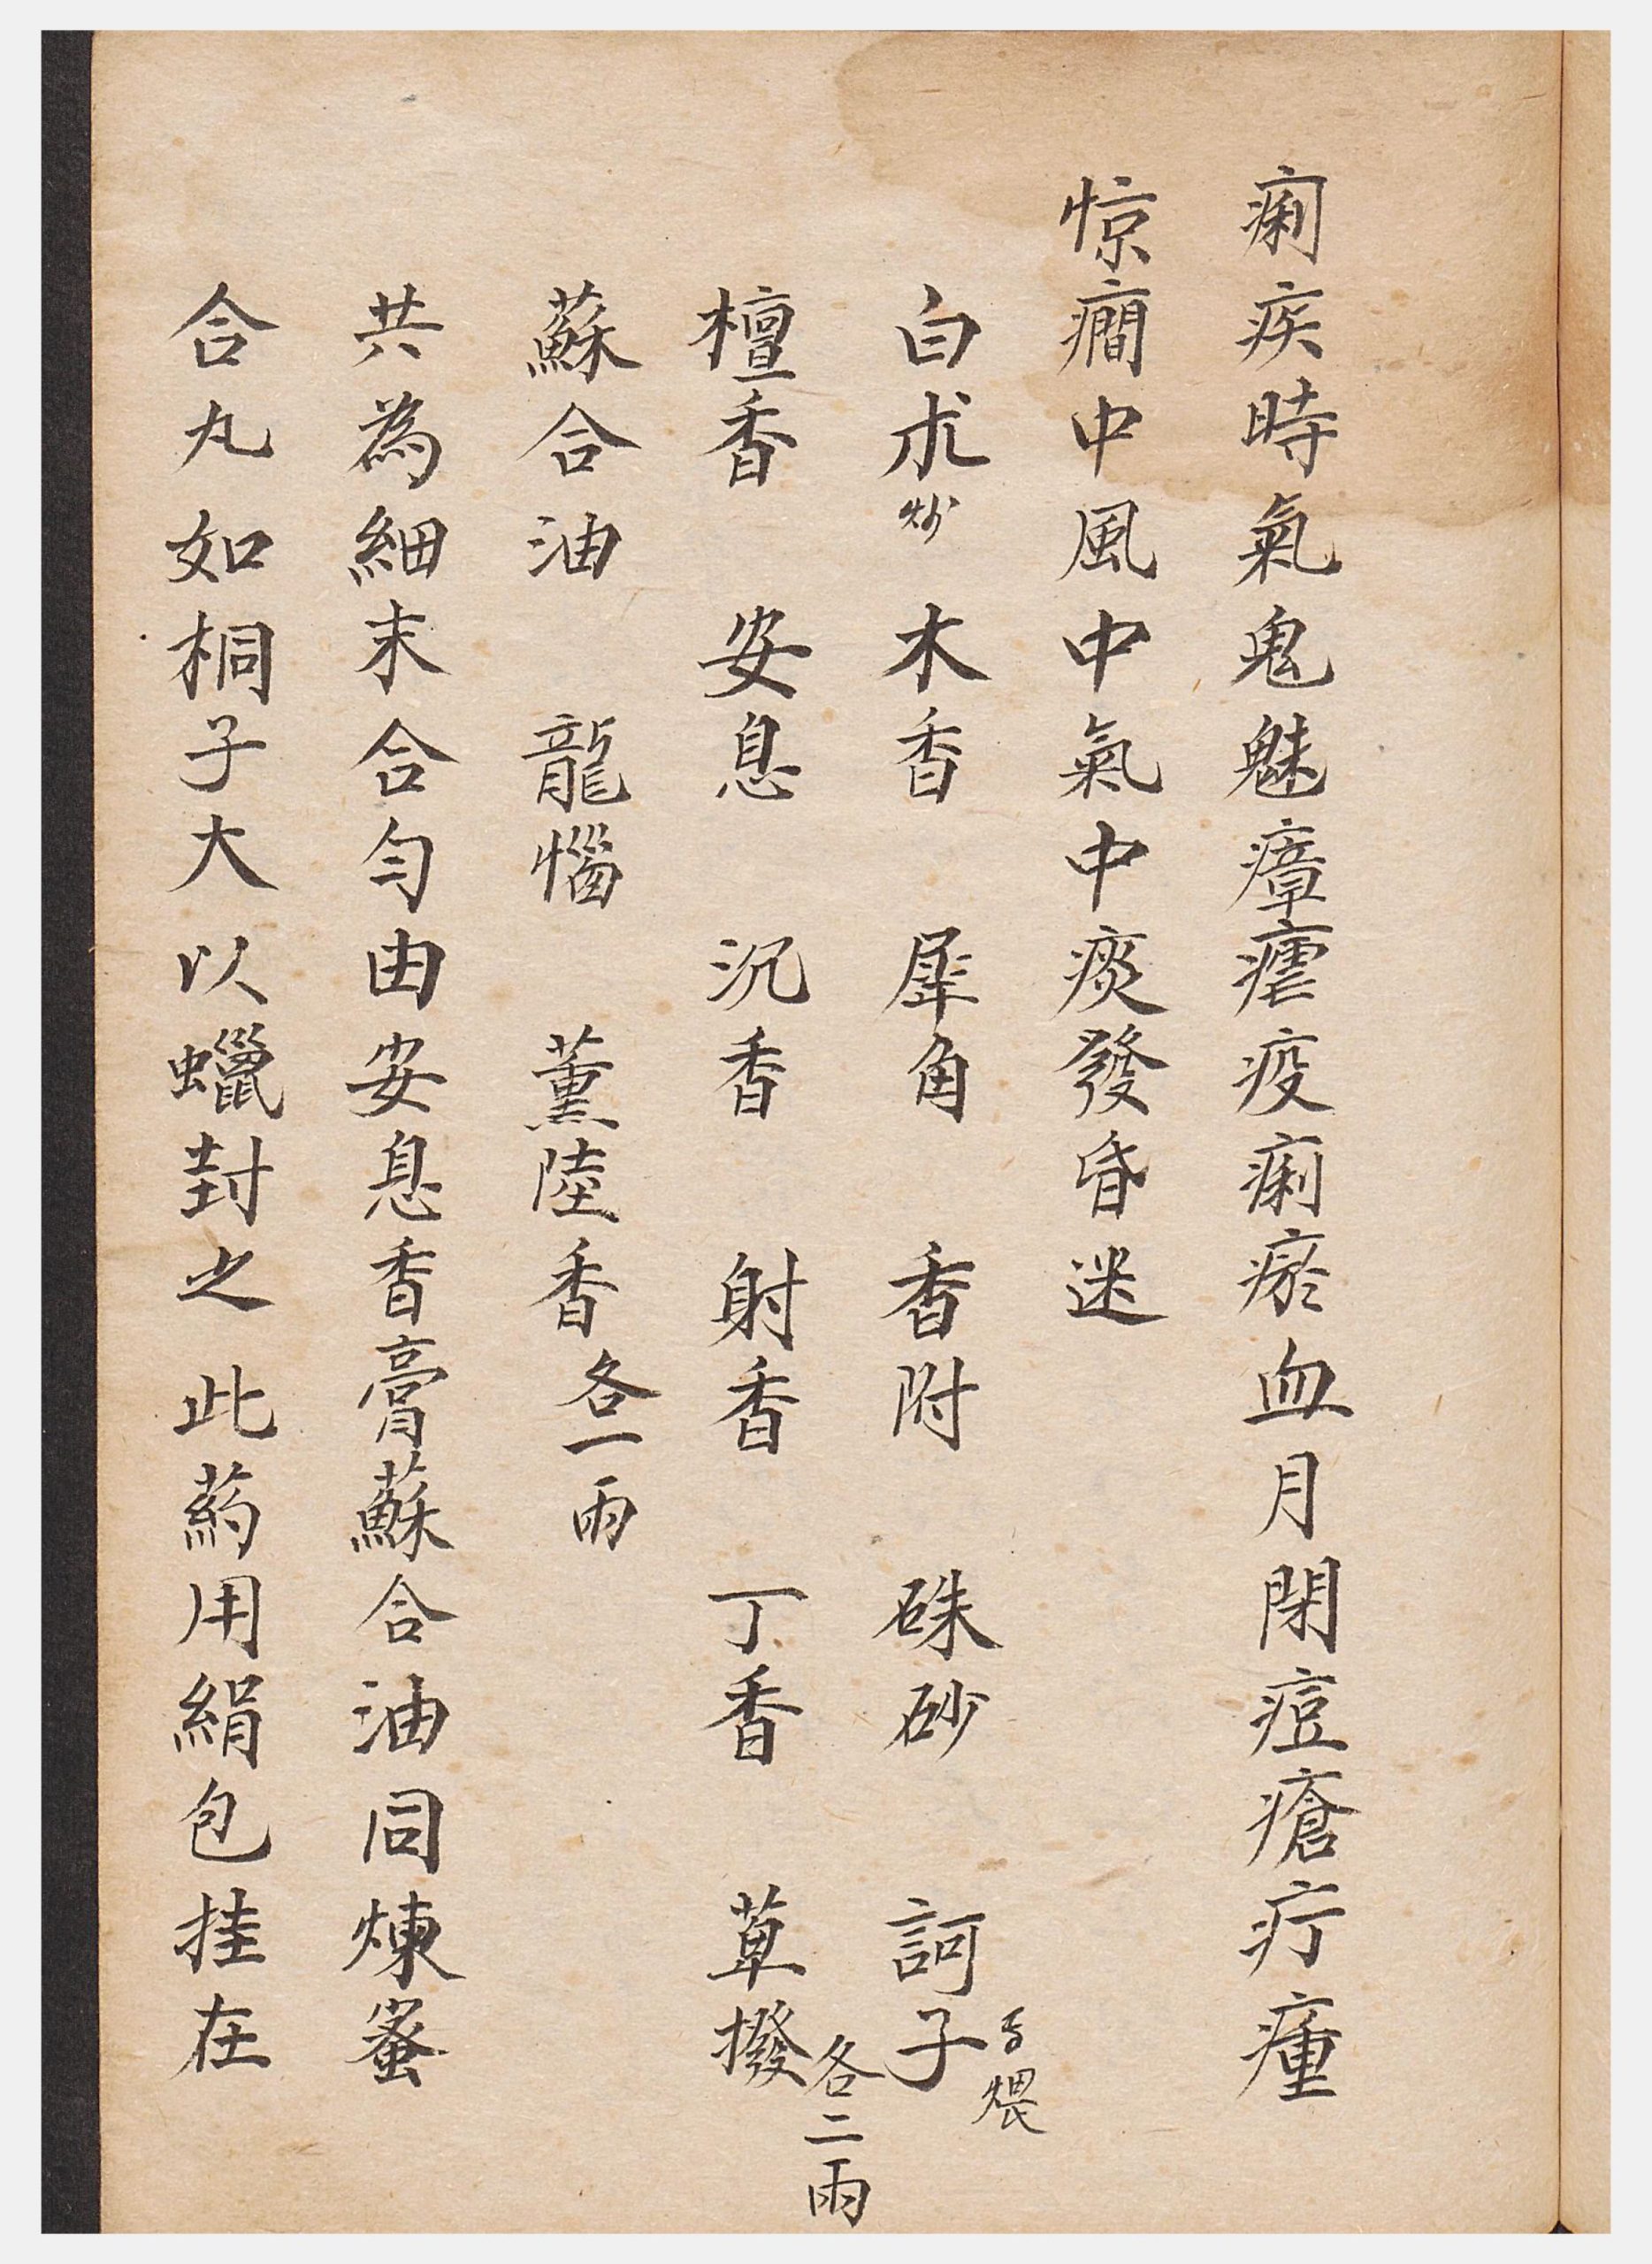 痢疾時氣鬼魅瘴瘧疫痢瘀血月閉痘瘡疔瘇
惊癇中風中氣中痰發昏迷
白朮炒 木香 犀角 香附 硃砂 訶子煨
檀香 安息 沉香 射香 丁香 草撥各二兩
蘇合油 龍惱 薰陸香各一兩
共為細末合匀由安息香膏蘇合油同煉蜜
合丸如桐子大以蠟封之此葯用絹包挂在